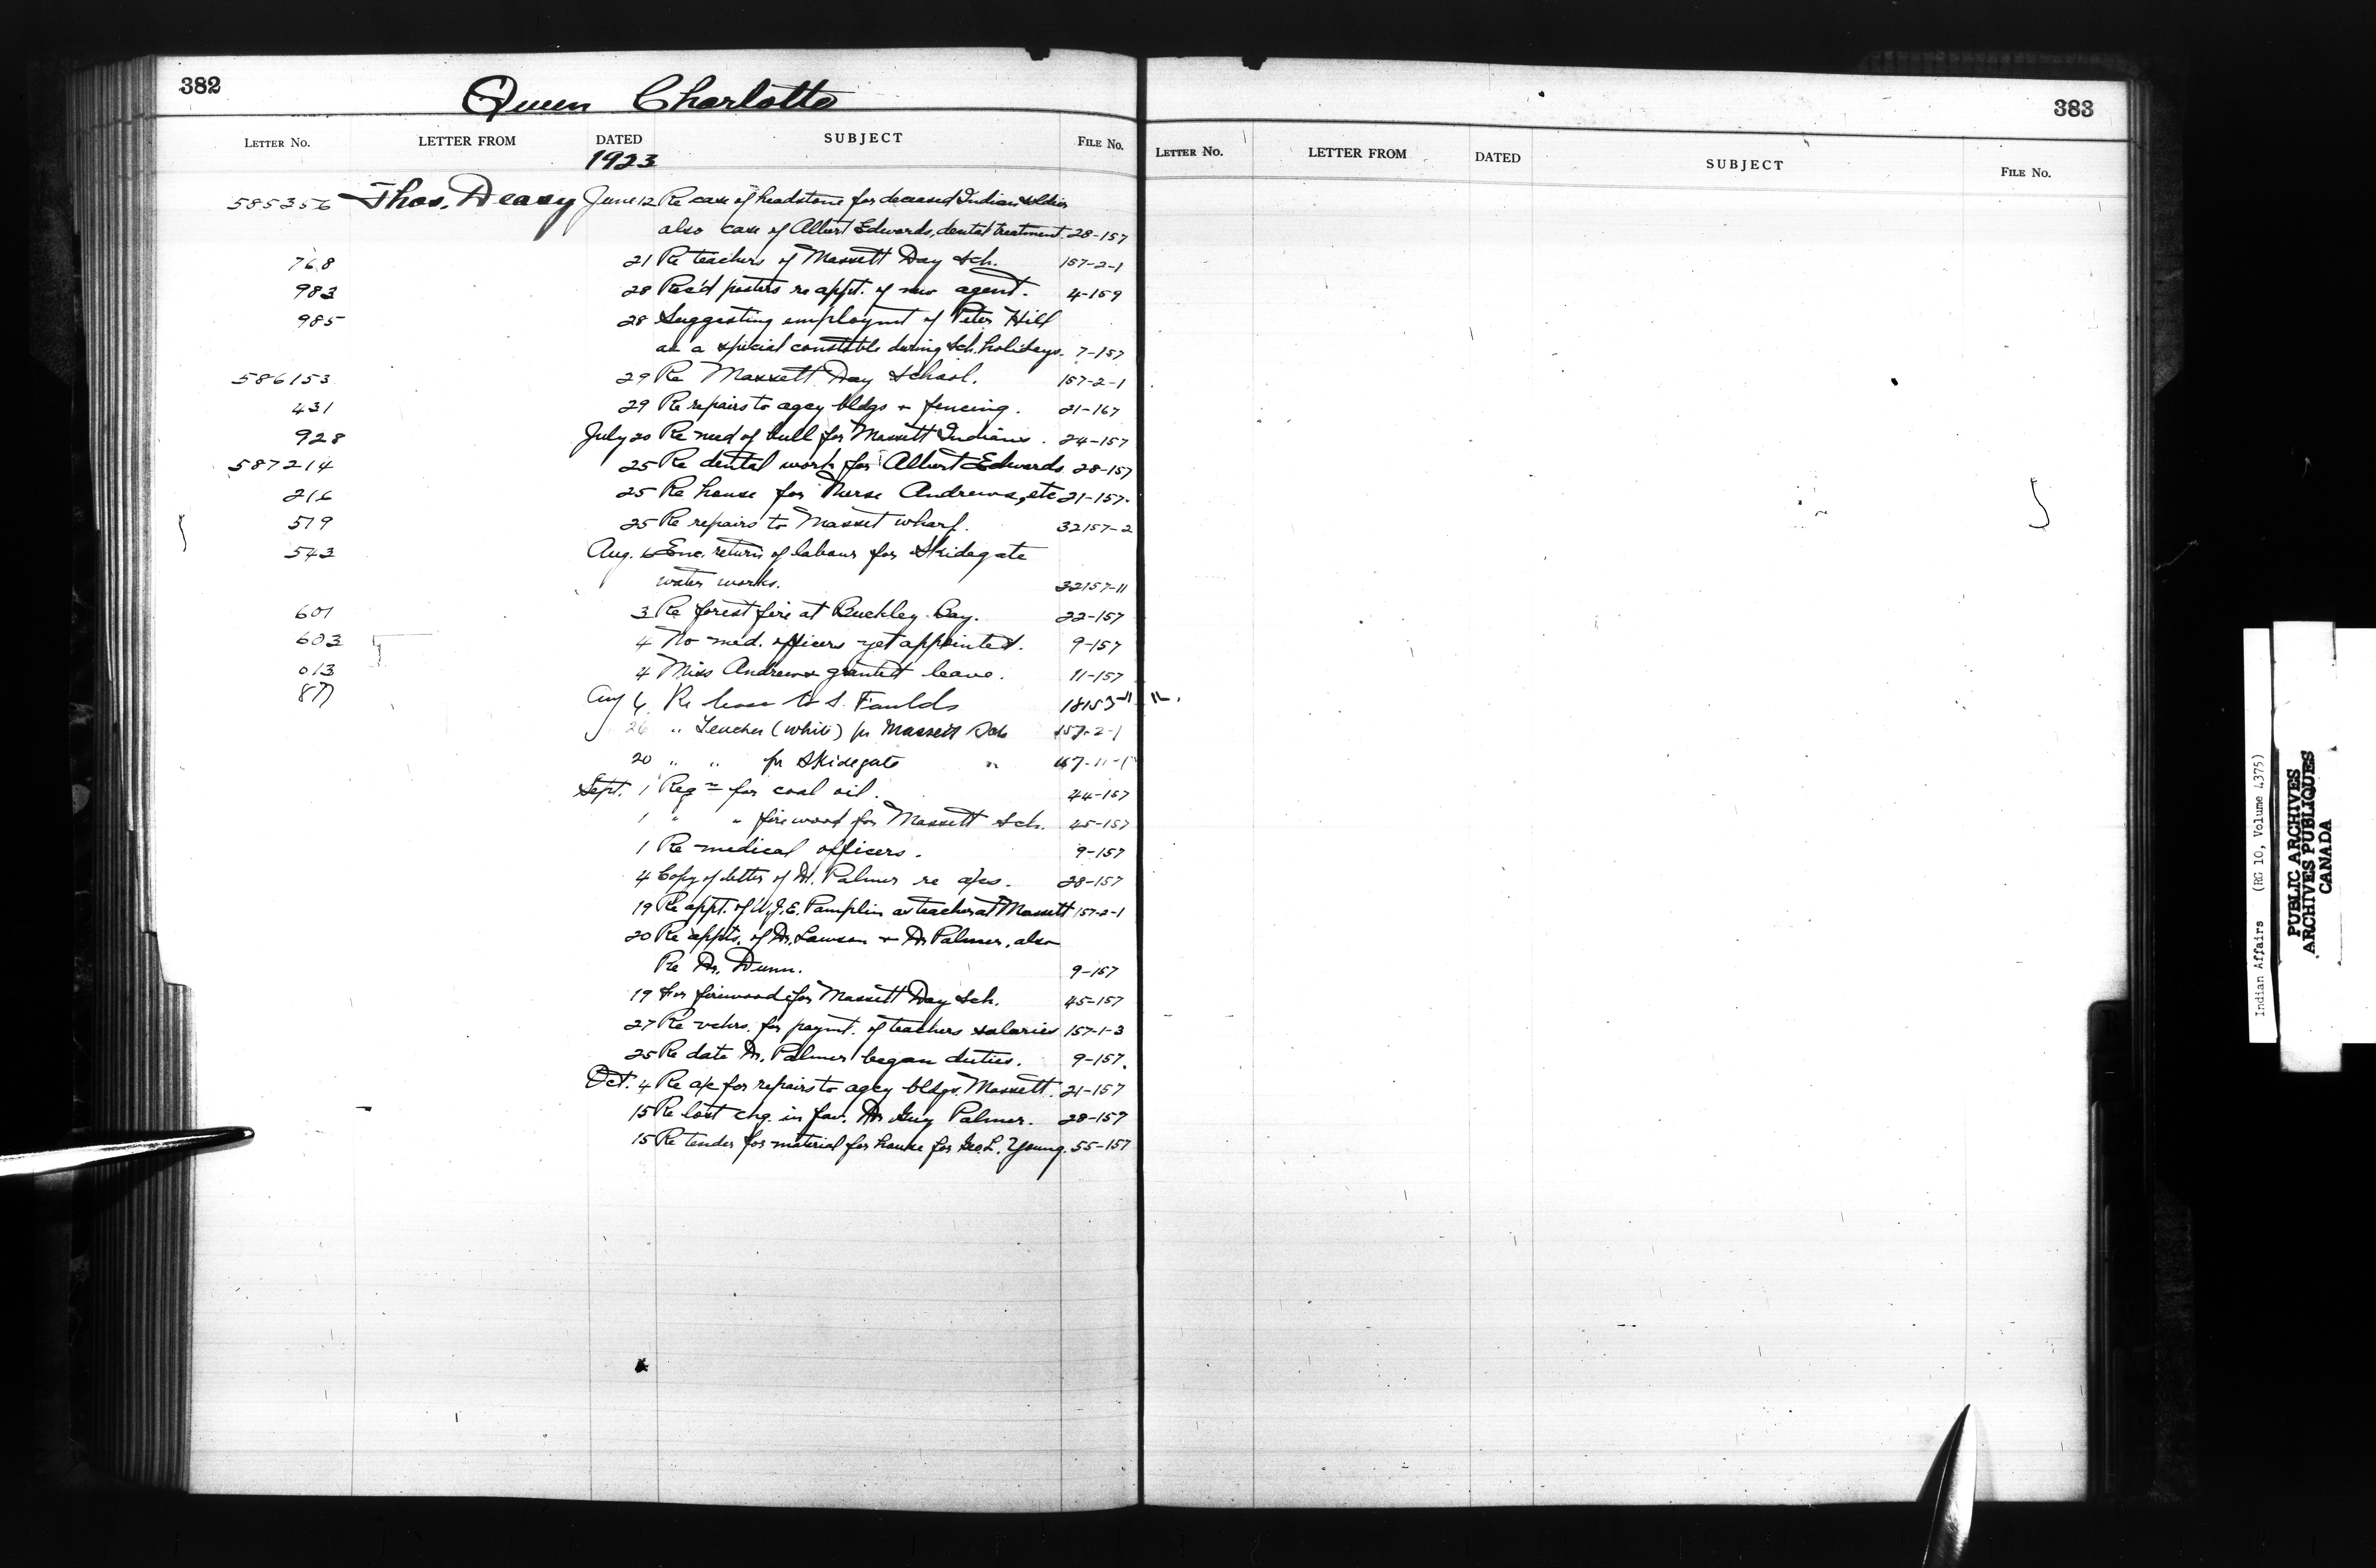 382
Queen Charlotte
LETTER No. LETTER FROM DATED SUBJECT FILE No.
1923
585356 Thos. Deasy June 12 Re case of headstone for deceased Indian soldier
also case of Albert Edwards, dental treatment. 28-157
768 21 Re teachers of Massett Day Sch. 157-2-1
983 28 Rec'd posters re appt. of new agent. 4-159
985 28 Suggesting employmt of Peter Hill
as a special constable during Sch. holidays. 7-157
586153 29 Re Massett Day School. 157-2-1
431 29 Re repairs to agcy bldgs + fencing. 21-167
928 July 20 Re need of bull for Massett Indians. 24-157
587214 25 Re dental work for Albert Edwards 28-157
216 25 Re house for Nurse Andrews, etc 21-157.
519 25 Re repairs to Masset wharf. 32157-2
543 Aug. 6 Enc. return of labour for Skidegate
water works. 32157-11
601 3 Re forest fire at Buckley Bay. 22-157
603 4 No med. officers yet appointed. 9-157
013 4 Miss Andrews granted leave. 11-157
877 Aug 6 Re lease to S. Faulds
26 " Teacher (white) for Massett Sch 157-2-1
20 " " for Skidegate "
Sept. 1 Reqn for coal oil. 44-157
1 " " firewood for Massett Sch. 45-157
1 Re medical officers. 9-157
4 Copy of letter of Dr. Palmer re a/cs. 28-157
19 Re appt. of W.J.E. Pamplin as teacher at Massett 157-2-1
20 Re appts. of Dr. Lawson + Dr Palmer, also
Re Dr. Dunn. 9-157
19 For firewood for Massett Day Sch. 45-157
27 Re vchrs. for paymt. of teachers salaries 157-1-3
25 Re date Dr. Palmer began duties. 9-157.
Oct. 4 Re a/c for repairs to agcy bldgs. Massett. 21-157
15 Re lost chq. in fav. Dr Guy Palmer. 28-157
15 Re tender for material for house for Geo. L. Young. 55-157
383
LETTER No. LETTER FROM DATED SUBJECT FILE No.
Indian Affairs (RG 10, Volume 4375)
PUBLIC ARCHIVES
ARCHIVES PUBLIQUES
CANADA